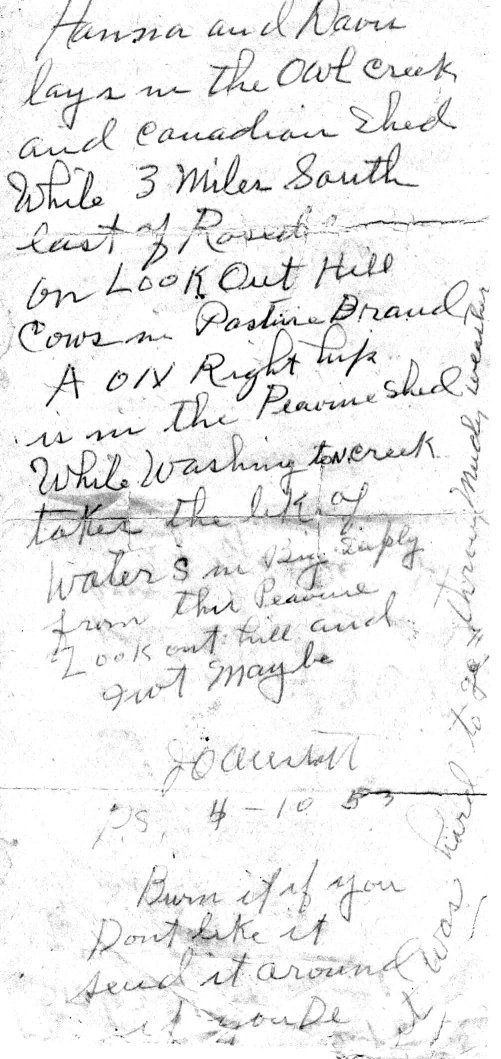 Hanna and Davis
lays in the Owl Creek
and Canadian Shed
While 3 Miles South
East of
on Look Out Hill
Cows in Pasture Brand
Right hip
is in the Peavine Shed
While Washington Creek
takes the lik of
Water's in Big Suiply
from this Peavine
Look out hill and
Maybe
P.S. 4-10 53
Burn it if you
Dont like it
send it around
if you De
it was hard to go Muddy weather